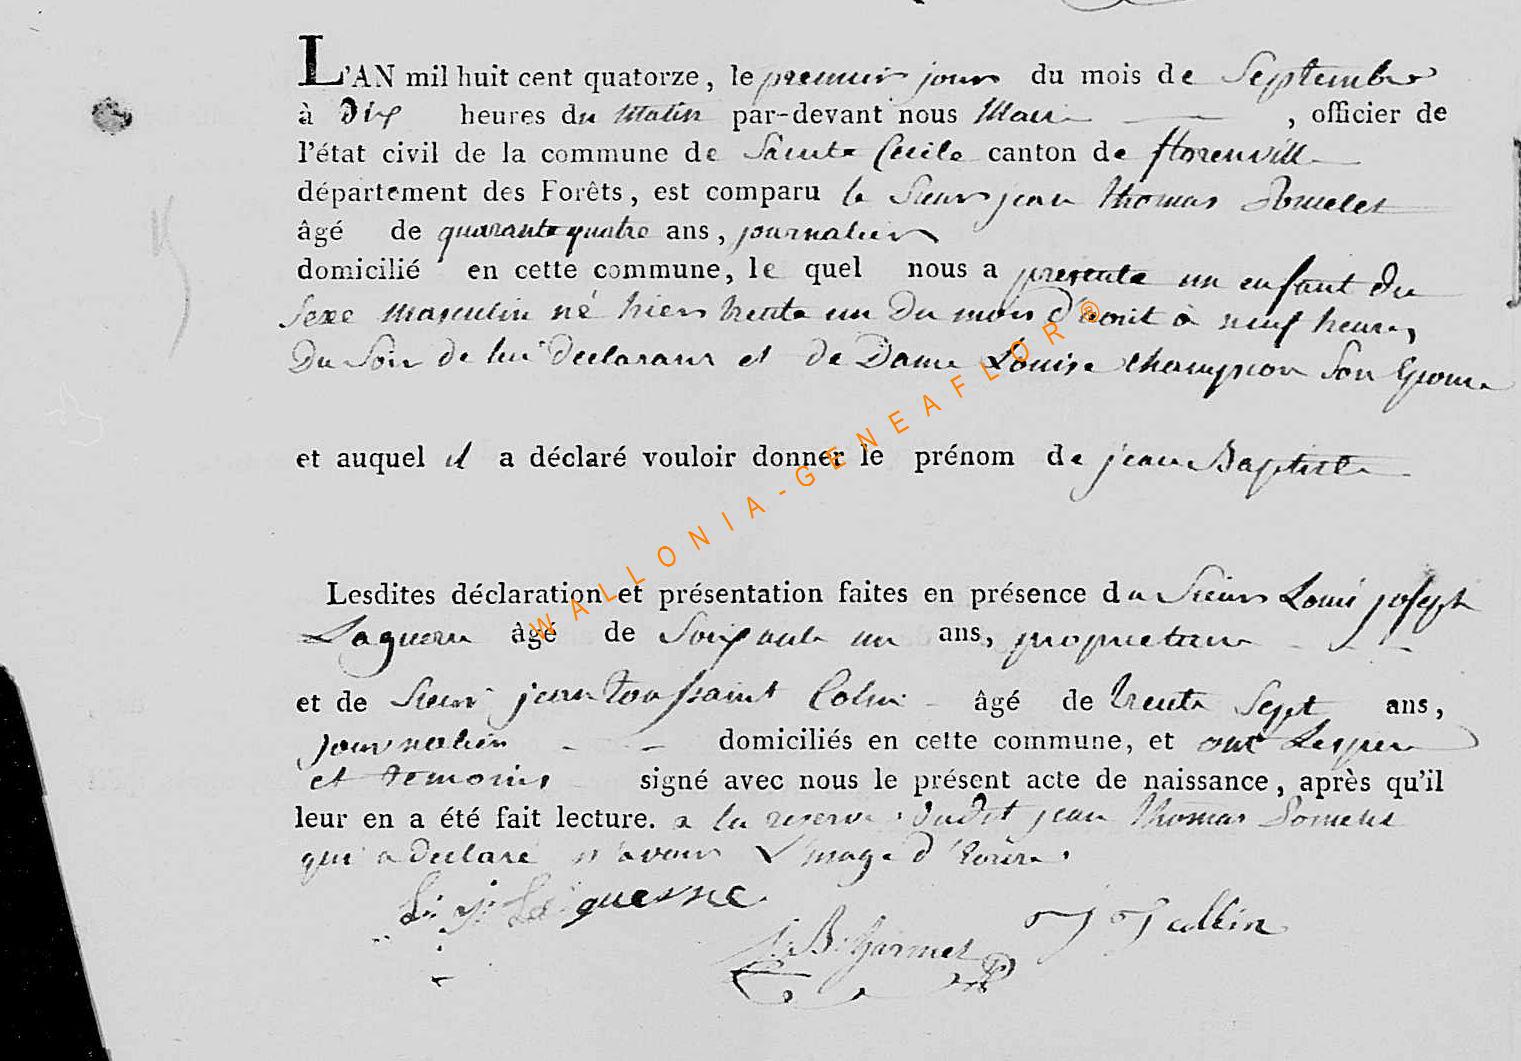 L'AN mil huit cent quatorze, le premier jour du mois de Septembre
à Dix heures du Matin par-devant nous Maire, officier de
l'état civil de la commune de Sainte Cecile canton de florenville
département des Forêts, est comparu le Sieur jean thomas
âgé de quarante quatre ans, journalier
domicilié en cette commune, le quel nous a presenté un enfant du
Sexe Masculin né hier trente un du mois d'aout à neuf heures
Du Soir de lui declarant et de Dame Louise Champion Son Epouse
et auquel il a déclaré vouloir donner le prénom de jean Baptiste
Lesdites déclaration et présentation faites en présence du Sieur Louis joseph
Laquesne âgé de Soixante un ans, proprietaire
et de Sieur jean toussaint âgé de trente Sept ans,
journalier domiciliés en cette commune, et ont
et temoins signé avec nous le présent acte de naissance, après qu'il
leur en a été fait lecture. a la reserve dudit jean thomas
qui a declaré n'avoir L'usage d'Ecrire.
L: j: Laquesne
WALLONIA-GENEAFLOR ®